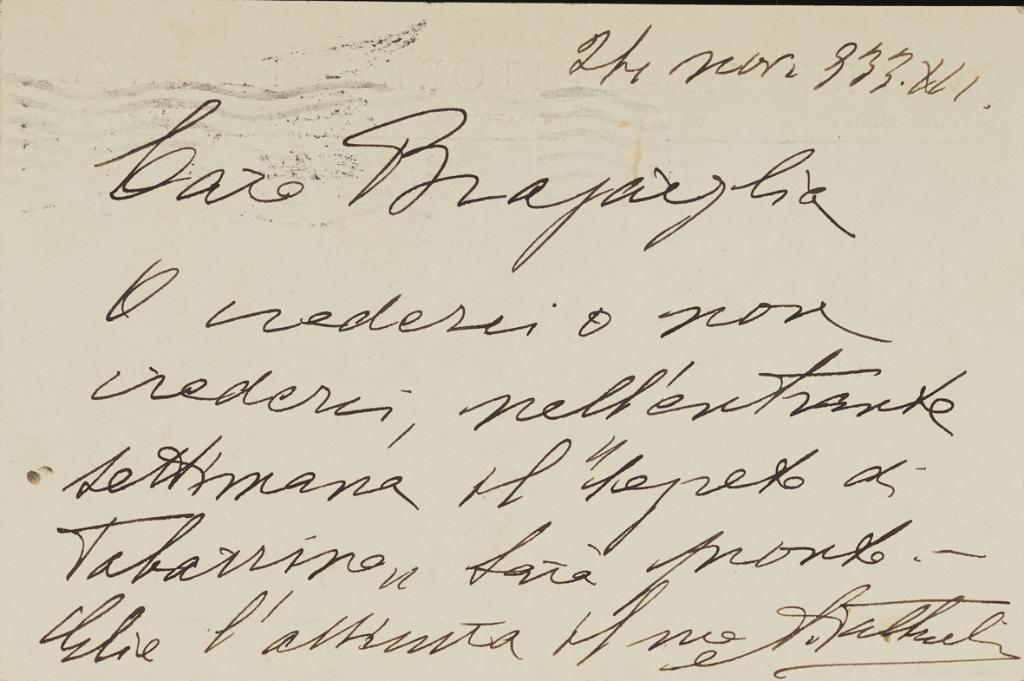 24 nov. 933.XII.
Caro Bragaglia
O crederci o non
crederci, nell'entrante
settimana il "segreto di
Tabarrino" sarà pronto. —
Glie l'assicura il suo